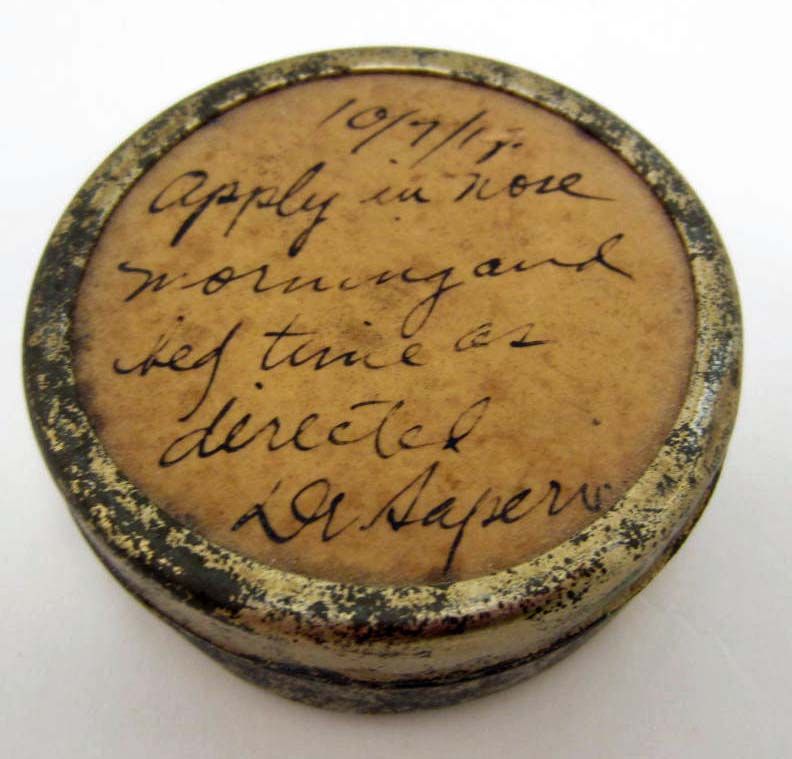 10/7/17.
Apply in nose
morning and
bed time as
directed
Dr.